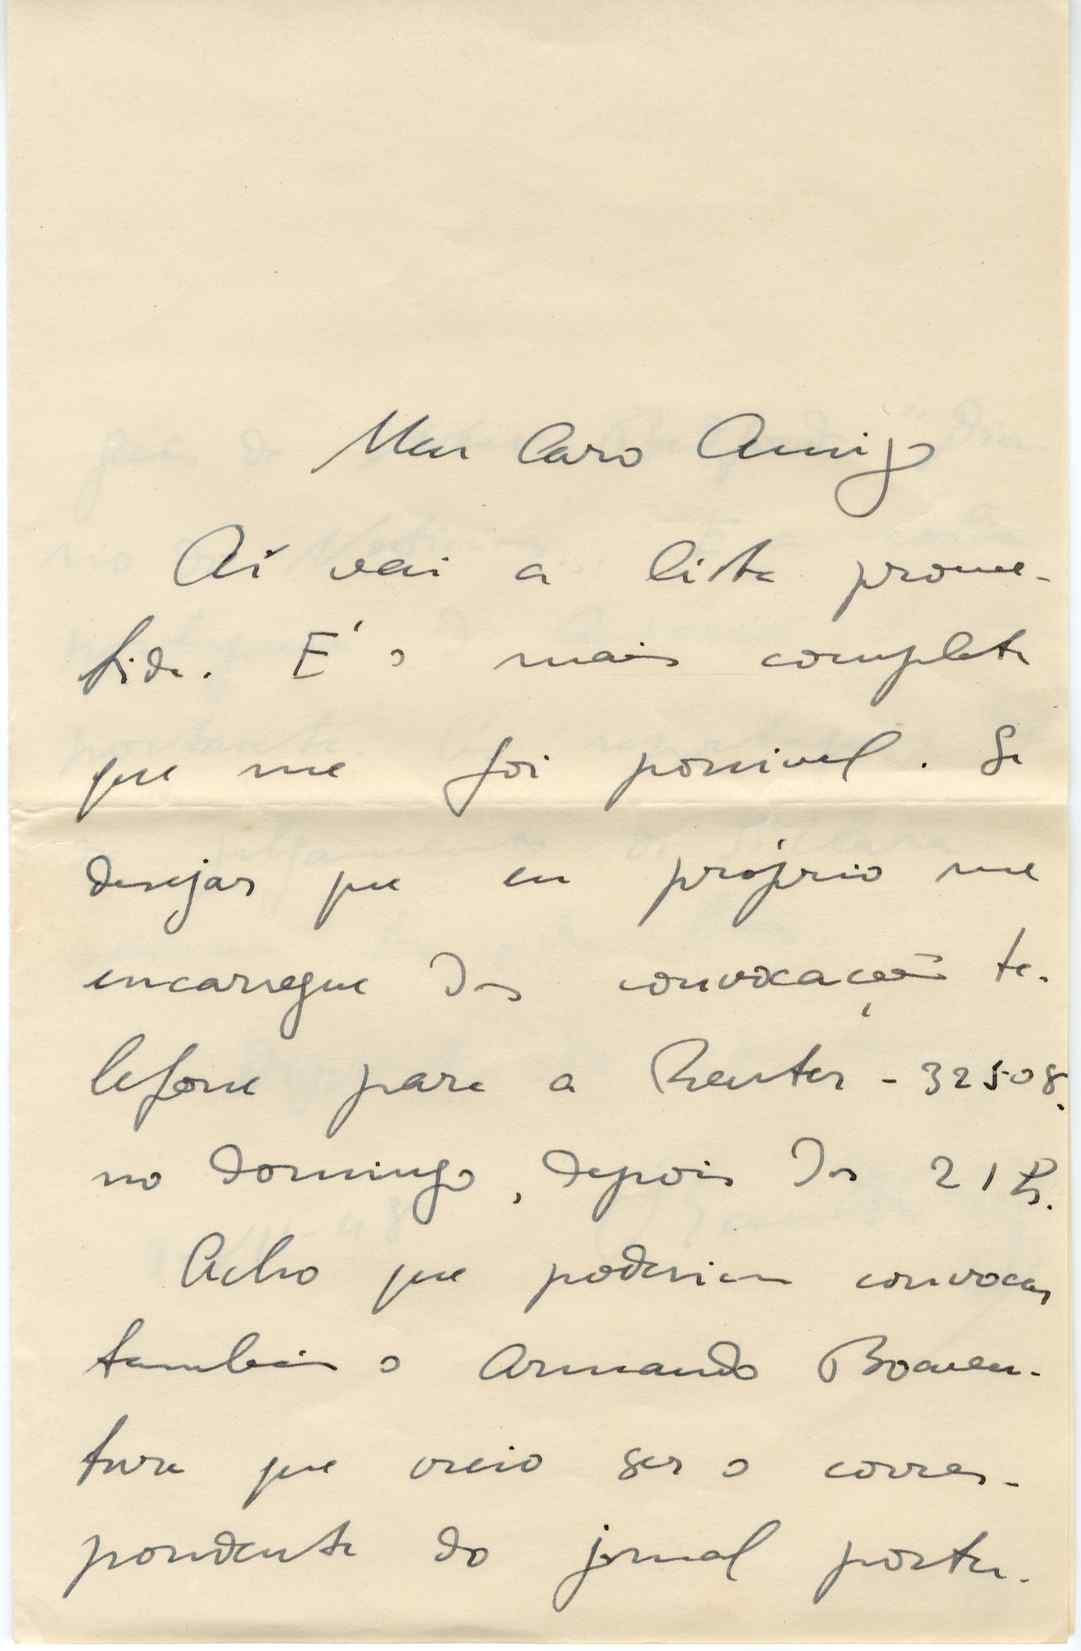 Meu Caro Amigo
Aí vai a lista prome-
tida. É o mais completa
que me foi possivel. Se
desejar que eu próprio me
encarregue das convocações te-
lefone para a Reuter - 32508,
no domingo, depois das 21 h.
Acho que poderiam convocar
tambem o Armando Boaven-
tura que creio ser o corres-
pondente do jornal portu-